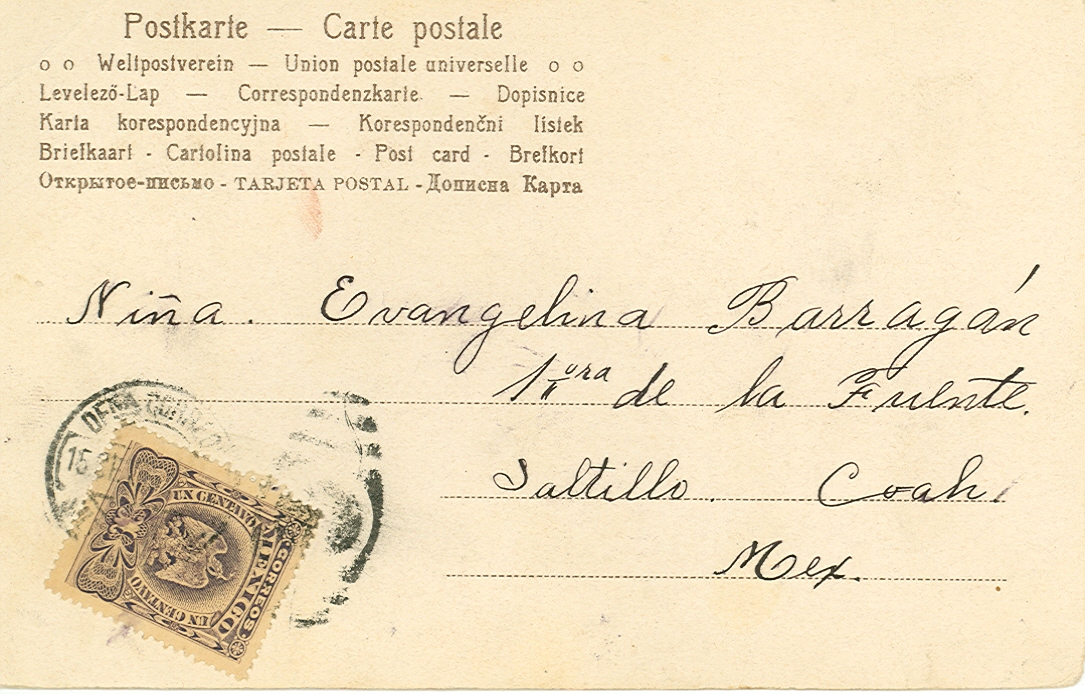 Postkarte — Carte postale
o o Weltpostverein — Union postale universelle o o
Levelező-Lap — Correspondenzkarte — Dopisnice
Karta korespondencyjna — Korespondenční lístek
Briefkaart - Cartolina postale - Post card - Brefkort
Открытое-письмо - TARJETA POSTAL - Дописна Карта
Niña. Evangelina Barragán
1ra de la Fuente.
Saltillo. Coah.
Mex.
UN CENTAVO
UN CENTAVO
CORREOS
MEXICO